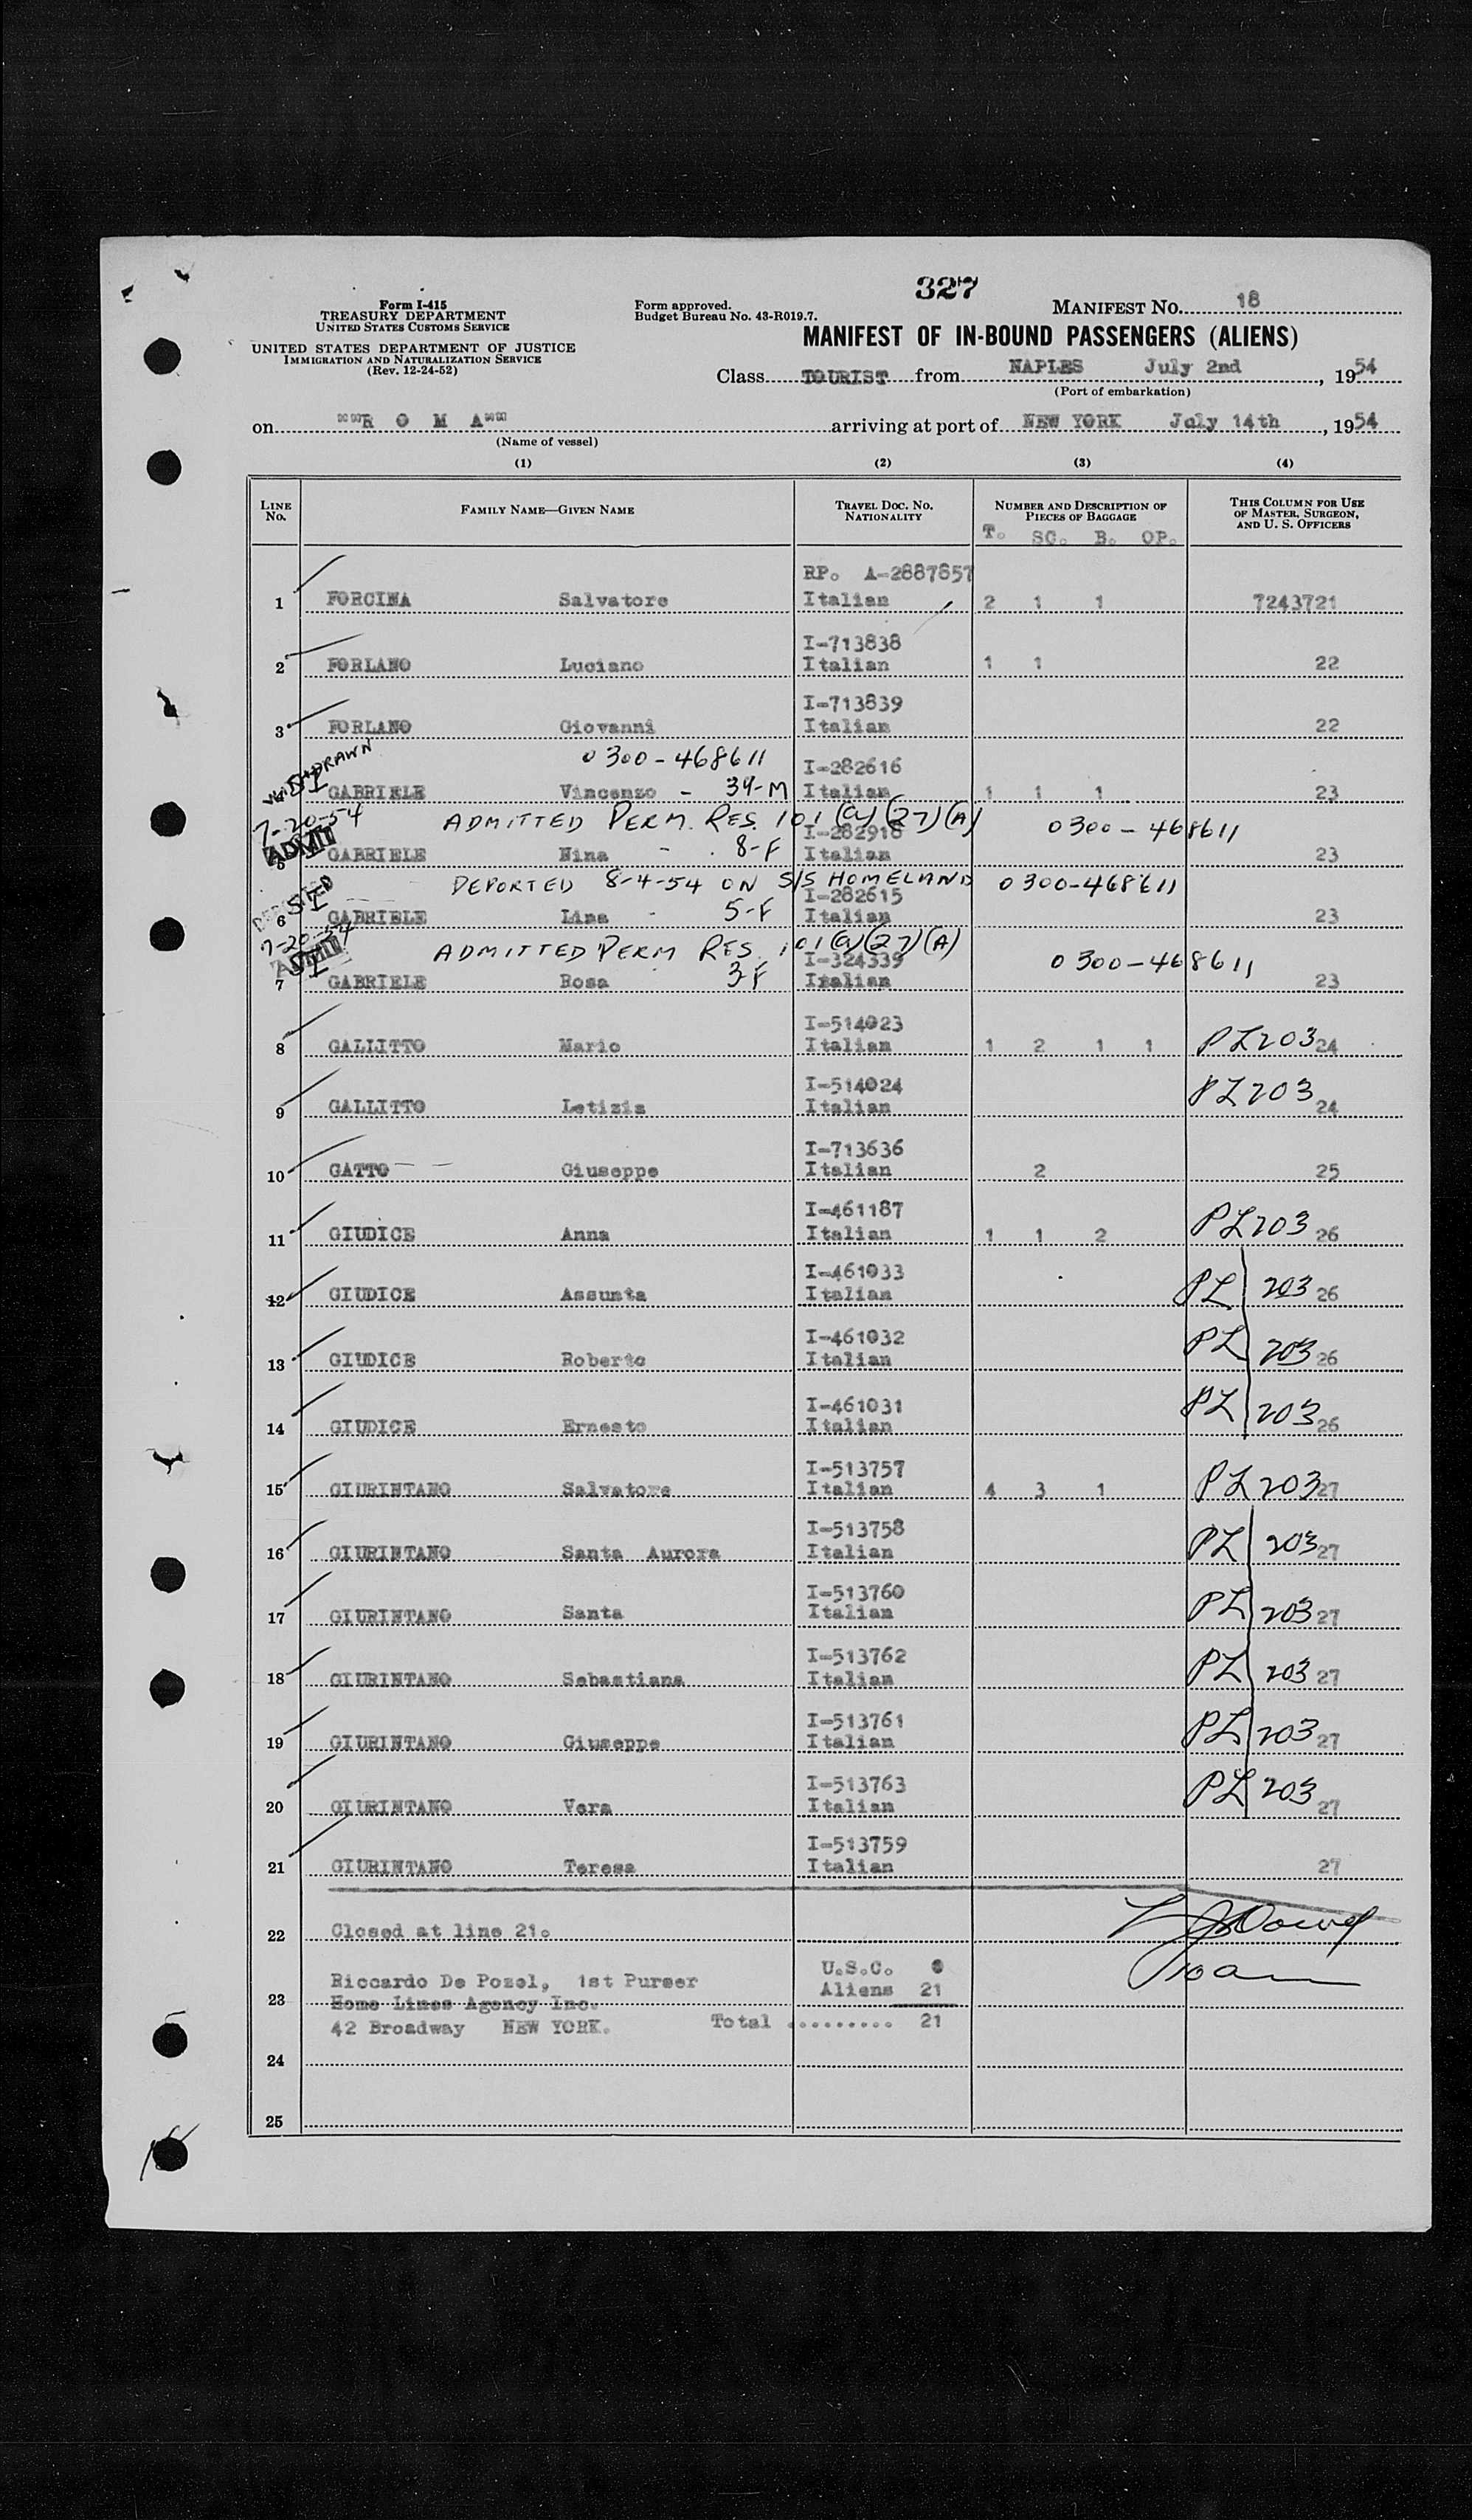 327
Form I-415
TREASURY DEPARTMENT
UNITED STATES CUSTOMS SERVICE
UNITED STATES DEPARTMENT OF JUSTICE
IMMIGRATION AND NATURALIZATION SERVICE
(Rev. 12-24-52)
Form approved.
Budget Bureau No. 43-R019.7.
MANIFEST NO. 18
MANIFEST OF IN-BOUND PASSENGERS (ALIENS)
Class TOURIST from NAPLES July 2nd, 1954
(Port of embarkation)
on ""R O M A"" arriving at port of NEW YORK July 14th, 1954
(Name of vessel)
(1) (2) (3) (4)
LINE No. FAMILY NAME—GIVEN NAME TRAVEL DOC. NO. NATIONALITY NUMBER AND DESCRIPTION OF PIECES OF BAGGAGE THIS COLUMN FOR USE OF MASTER, SURGEON, AND U. S. OFFICERS
T. SC. B. OP.
RP. A-2887857
1 FORCINA Salvatore Italian 2 1 1 7243721
I-713838
2 FORLANO Luciano Italian 1 1 22
I-713839
3 FORLANO Giovanni Italian 22
WITHDRAWN 0300-468611 I-282616
SI GABRIELE Vincenzo - 39-M Italian 1 1 1 23
7-20-54 ADMITTED PERM. RES. 101(a)(27)(A) 0300-468611
ADMIT I-282918
5 GABRIELE Nina - 8-F Italian 23
DEPORTED 8-4-54 ON S/S HOMELAND 0300-468611
DEPORTED SI I-282615
6 GABRIELE Lina - 5-F Italian 23
7-20-54 ADMITTED PERM RES. 101(a)(27)(A) 0300-468611
ADMIT SI I-324339
7 GABRIELE Rosa 3-F Italian 23
I-514023
8 GALLITTO Mario Italian 1 2 1 1 PL203 24
I-514024
9 GALLITTO Letizia Italian PL203 24
I-713636
10 GATTO Giuseppe Italian 2 25
I-461187
11 GIUDICE Anna Italian 1 1 2 PL203 26
I-461033
12 GIUDICE Assunta Italian PL 203 26
I-461032
13 GIUDICE Roberto Italian PL 203 26
I-461031
14 GIUDICE Ernesto Italian PL 203 26
I-513757
15 GIURINTANO Salvatore Italian 4 3 1 PL203 27
I-513758
16 GIURINTANO Santa Aurora Italian PL 203 27
I-513760
17 GIURINTANO Santa Italian PL 203 27
I-513762
18 GIURINTANO Sebastiana Italian PL 203 27
I-513761
19 GIURINTANO Giuseppe Italian PL 203 27
I-513763
20 GIURINTANO Vera Italian PL 203 27
I-513759
21 GIURINTANO Teresa Italian 27
22 Closed at line 21.
Riccardo De Pozel, 1st Purser U.S.C. 0
23 Home Lines Agency Inc. Aliens 21
42 Broadway NEW YORK. Total ......... 21
24
25